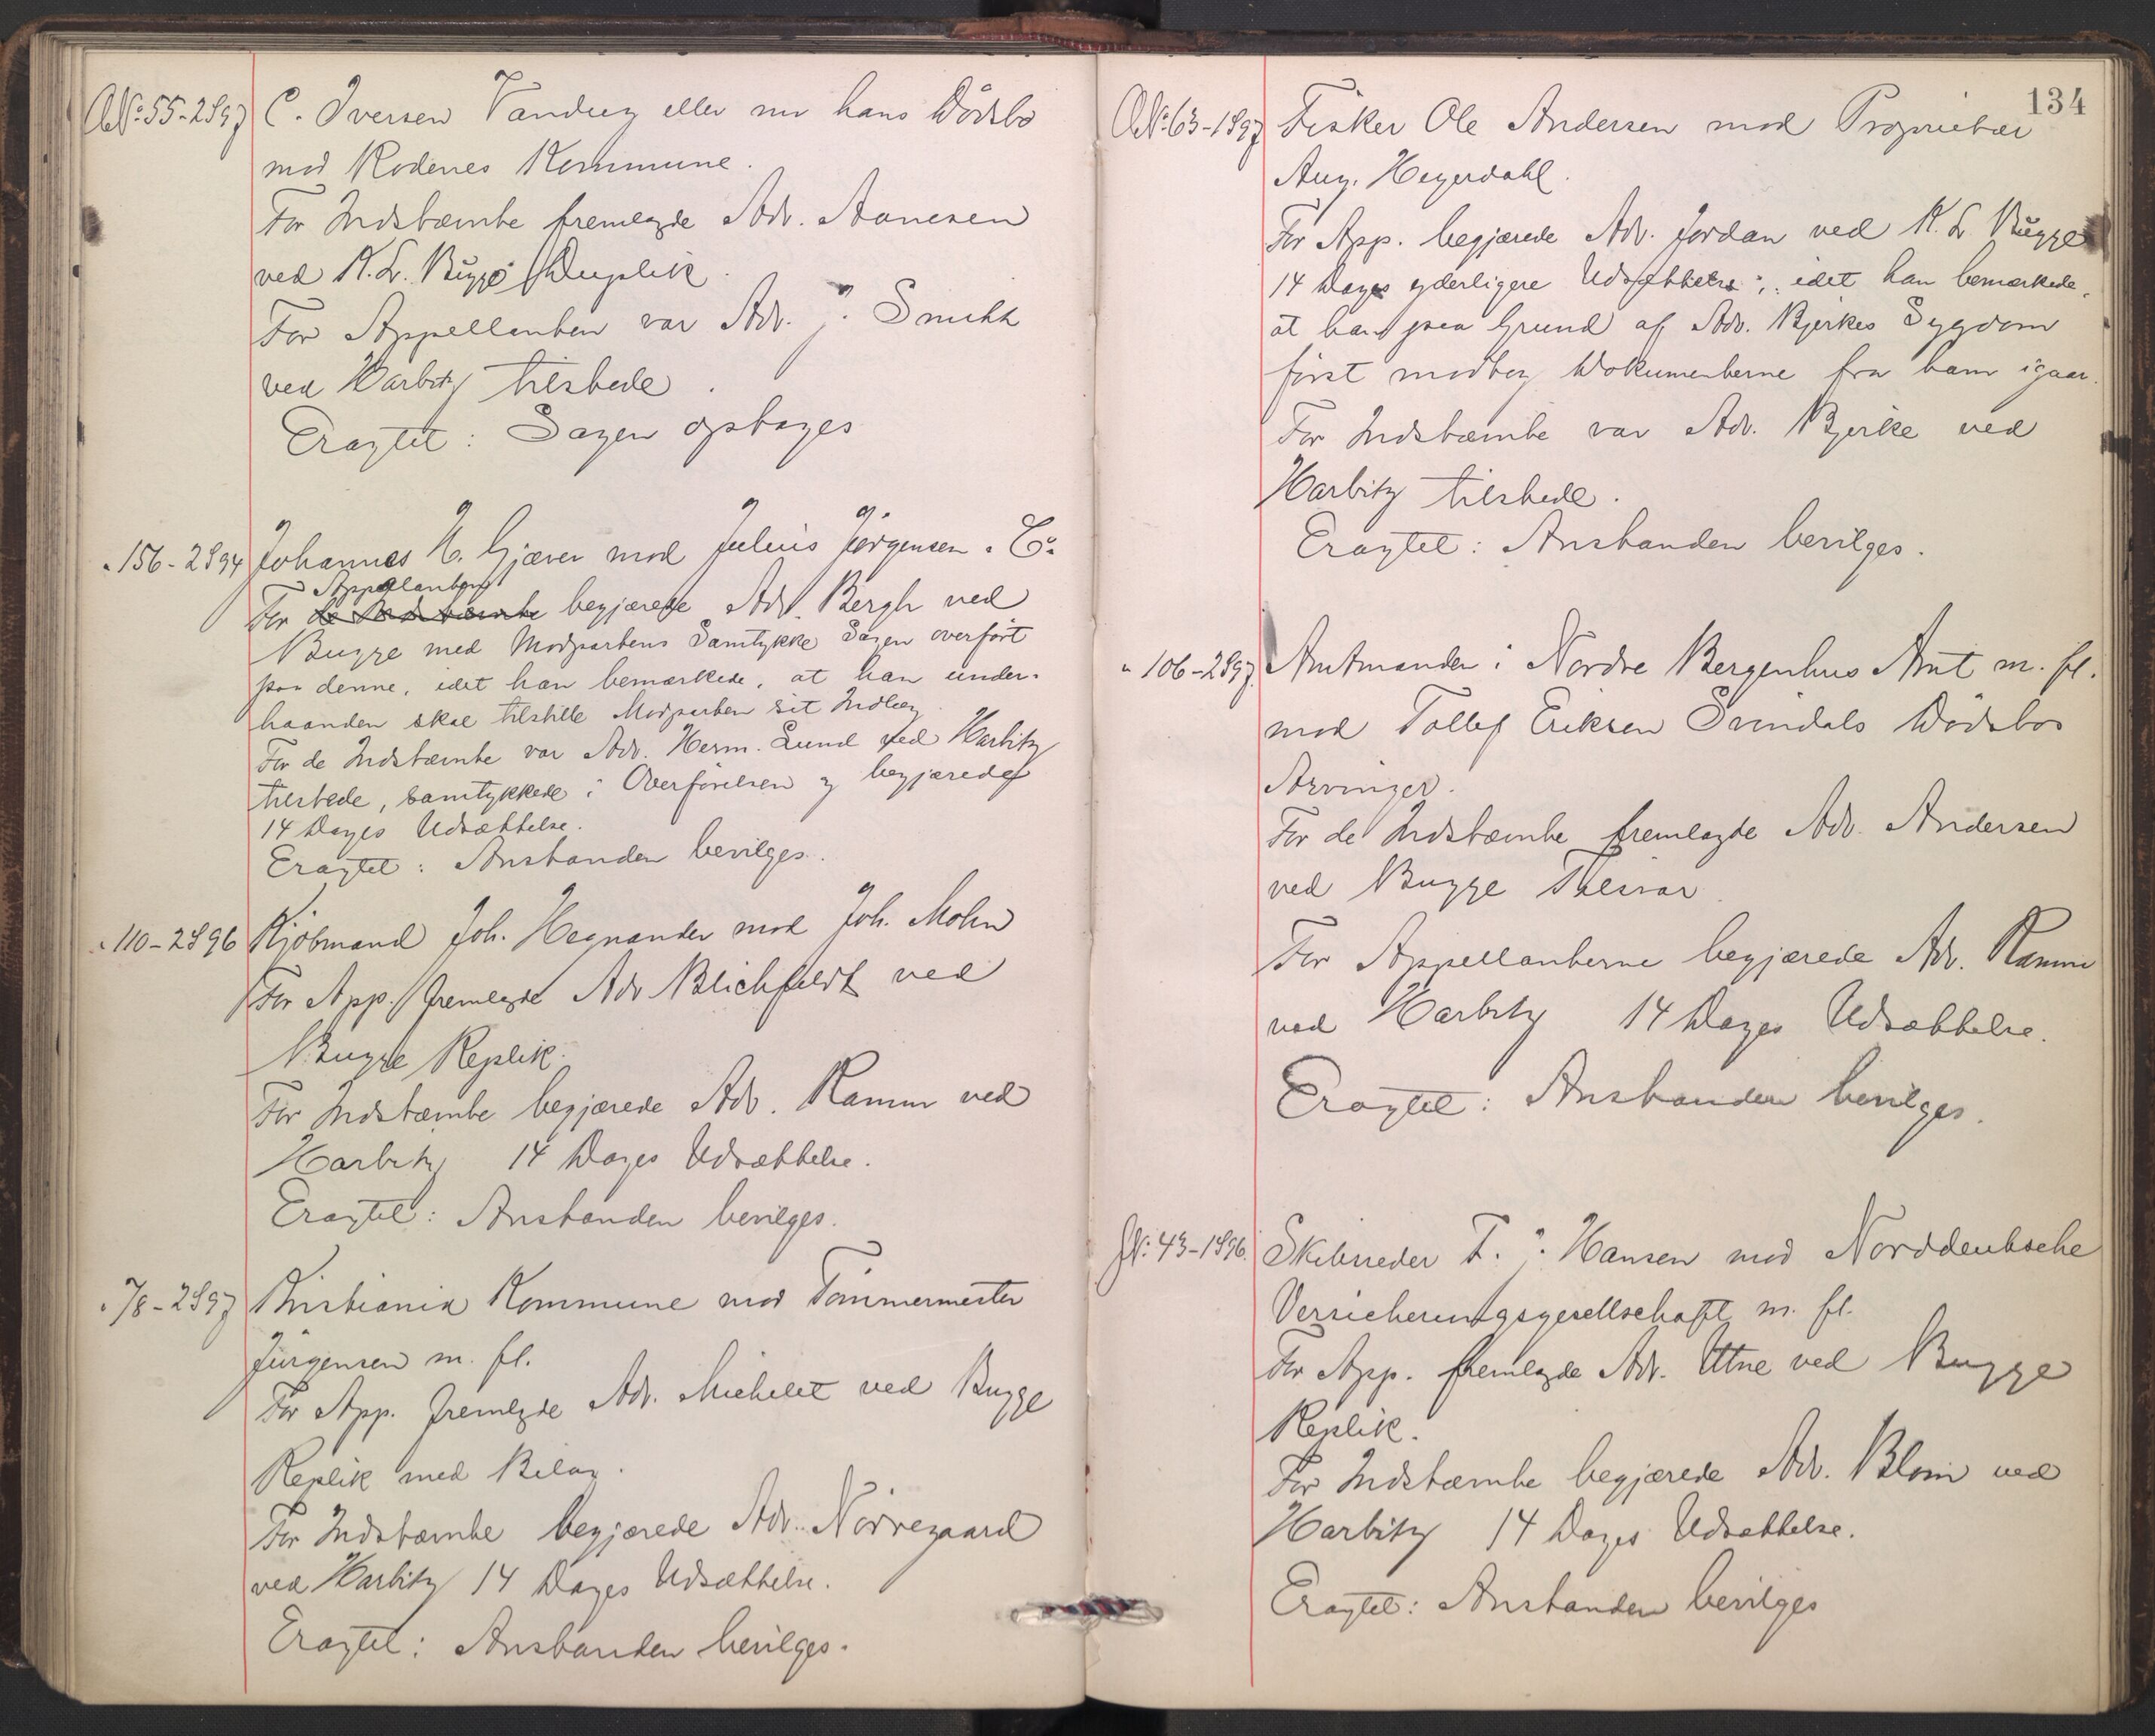 A№: 55-2897 C. Iversen Vandug eller nu hans Dödsbo
mod Rödenes Kommune.
For Indstæmte fremlagde Adv. Aanesen
ved K. L. Bugge Duplik.
For Appellanten var Adv. J. Smith
ved Harbitz tilstede.
Eragtet: Sagen optages
" 156-2894 Johannes H. Gjæver mod Julius Jörgensen & Co.
Appellanten
For de Indstævnte begjærede Adv. Bergh ved
Bugge med Modpartens Samtykke Sagen overført
paa denne, idet han bemærkede, at han under-
haanden skal tilstille Modparten sit Indlæg.
For de Indstæmte var Adv. Herm. Lund ved Harbitz
tilstede, samtykkede i Overførelsen og begjærede
14 Dages Udsættelse.
Eragtet: Anstanden bevilges.
" 110-2896 Kjöbmand Joh. Hegnander mod Joh. Mohn
For App. fremlagde Adv Blichfeldt ved
Bugge Replik.
For Indstæmte begjærede Adv. Ramm ved
Harbitz 14 Dages Udsættelse.
Eragtet: Anstanden bevilges.
" 78-2897 Kristiania Kommune mod Tömmermester
Jürgensen m. fl.
For App. fremlagde Adv. Michelet ved Bugge
Replik med Bilag.
For Indstæmte begjærede Adv. Nörregaard
ved Harbitz 14 Dages Udsættelse.
Eragtet: Anstanden bevilges.
134
A№: 63-1897 Fisker Ole Andersen mod Proprietær
Aug. Heyerdahl.
For App. begjærede Adv. Jordan ved K. L. Bugge
14 Dages yderligere Udsættelse, idet han bemærkede,
at han paa Grund af Adv. Bjerkes Sygdom
först modtog Dokumenterne fra ham igaar.
For Indstæmte var Adv. Bjerke ved
Harbitz tilstede.
Eragtet: Anstanden bevilges.
" 106-2897. Amtmanden i Nordre Bergenhus Amt m. fl.
mod Tollef Eriksen Svindals Dödsbos
Arvinger.
For de Indstæmte fremlagde Adv. Andersen
ved Bugge Tilsvar.
For Appellanterne begjærede Adv. Ramm
ved Harbitz 14 Dages Udsættelse.
Eragtet: Anstanden bevilges.
№: 43-1896. Skibsreder F. J. Hansen mod Norddeutsche
Versicherungsgesellschaft m. fl.
For App. fremlagde Adv. Utne ved Bugge
Replik.
For Indstæmte begjærede Adv. Blom ved
Harbitz 14 Dages Udsættelse.
Eragtet: Anstanden bevilges